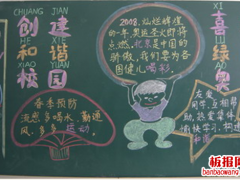 CHUANG JIAN
创建
和谐
HE XIE
校园
XIAO YUAN
2008, 灿烂辉煌
的一年, 奥运圣火即将
点燃, 北京是中国的
骄傲, 我们要为各
国健儿喝彩。
XI
喜
绿
奥
春季预防
流感多喝水、勤通
风、多多运动。
友爱
同学, 互相帮
助, 热爱集体
愉快学习
板报网
banbaowang